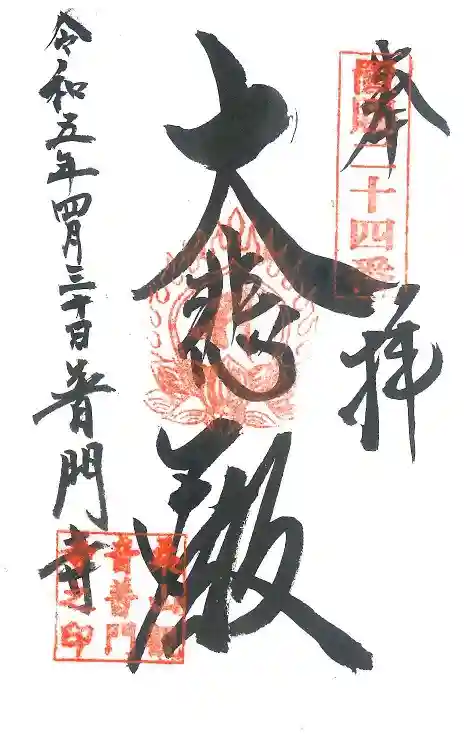 奉拝
二十四番
大悲殿
令和五年四月三十日 普門寺
音普門
寺印